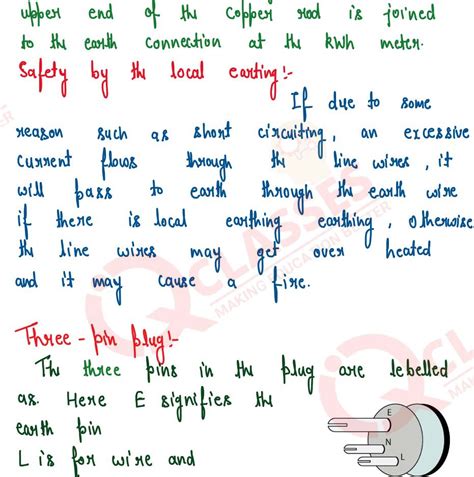 upper end of the copper rod is joined
to the earth connection at the kWh meter.
Safety by the local earting!-
If due to some
reason such as short circuiting, an excessive
current flows through the line wires, it
will pass to earth through the earth wire
if there is local earthing earthing, otherwise
the line wires may get over heated
and it may cause a fire.
Three-pin plug!-
The three pins in the plug are labelled
as. Here E signifies the
earth pin
L is for wire and
E
N
L
CLASSES
MAKING EDUCATION BETTER